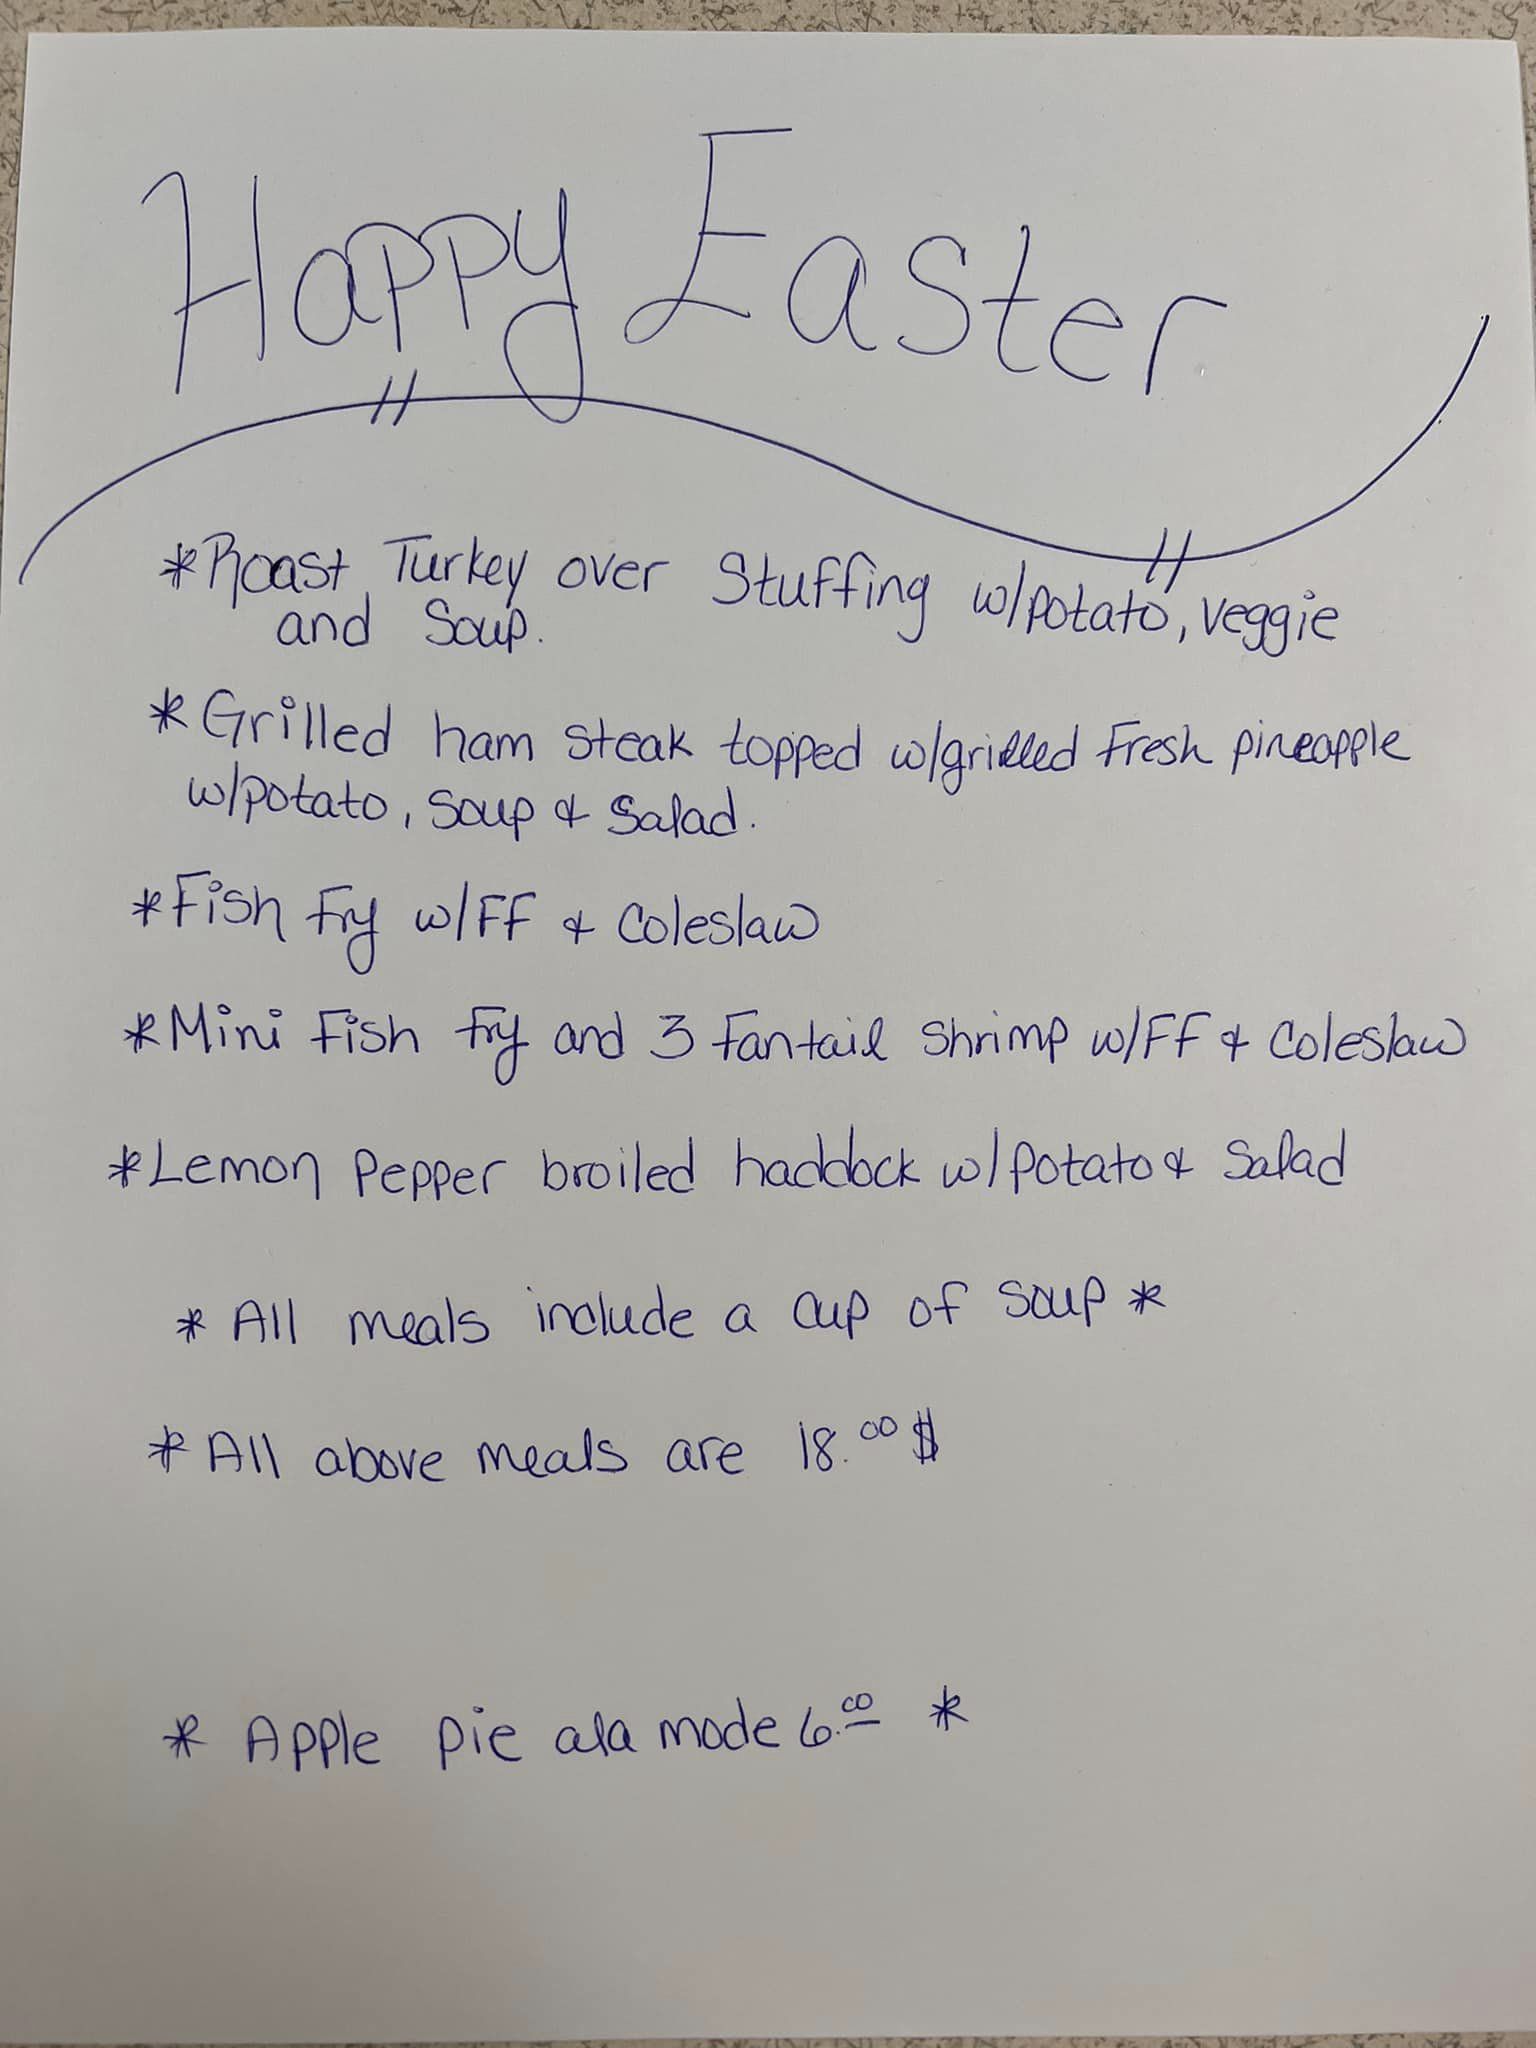 Happy Easter
*Roast Turkey over Stuffing w/potato, veggie
and Soup.
*Grilled ham steak topped w/grilled Fresh pineapple
w/potato, Soup & Salad.
*Fish Fry w/FF & Coleslaw
*Mini Fish Fry and 3 Fantail Shrimp w/FF & Coleslaw
*Lemon Pepper broiled haddock w/potato & Salad
*All meals include a cup of Soup*
*All above meals are 18.00$
* Apple pie ala mode 6.00 *